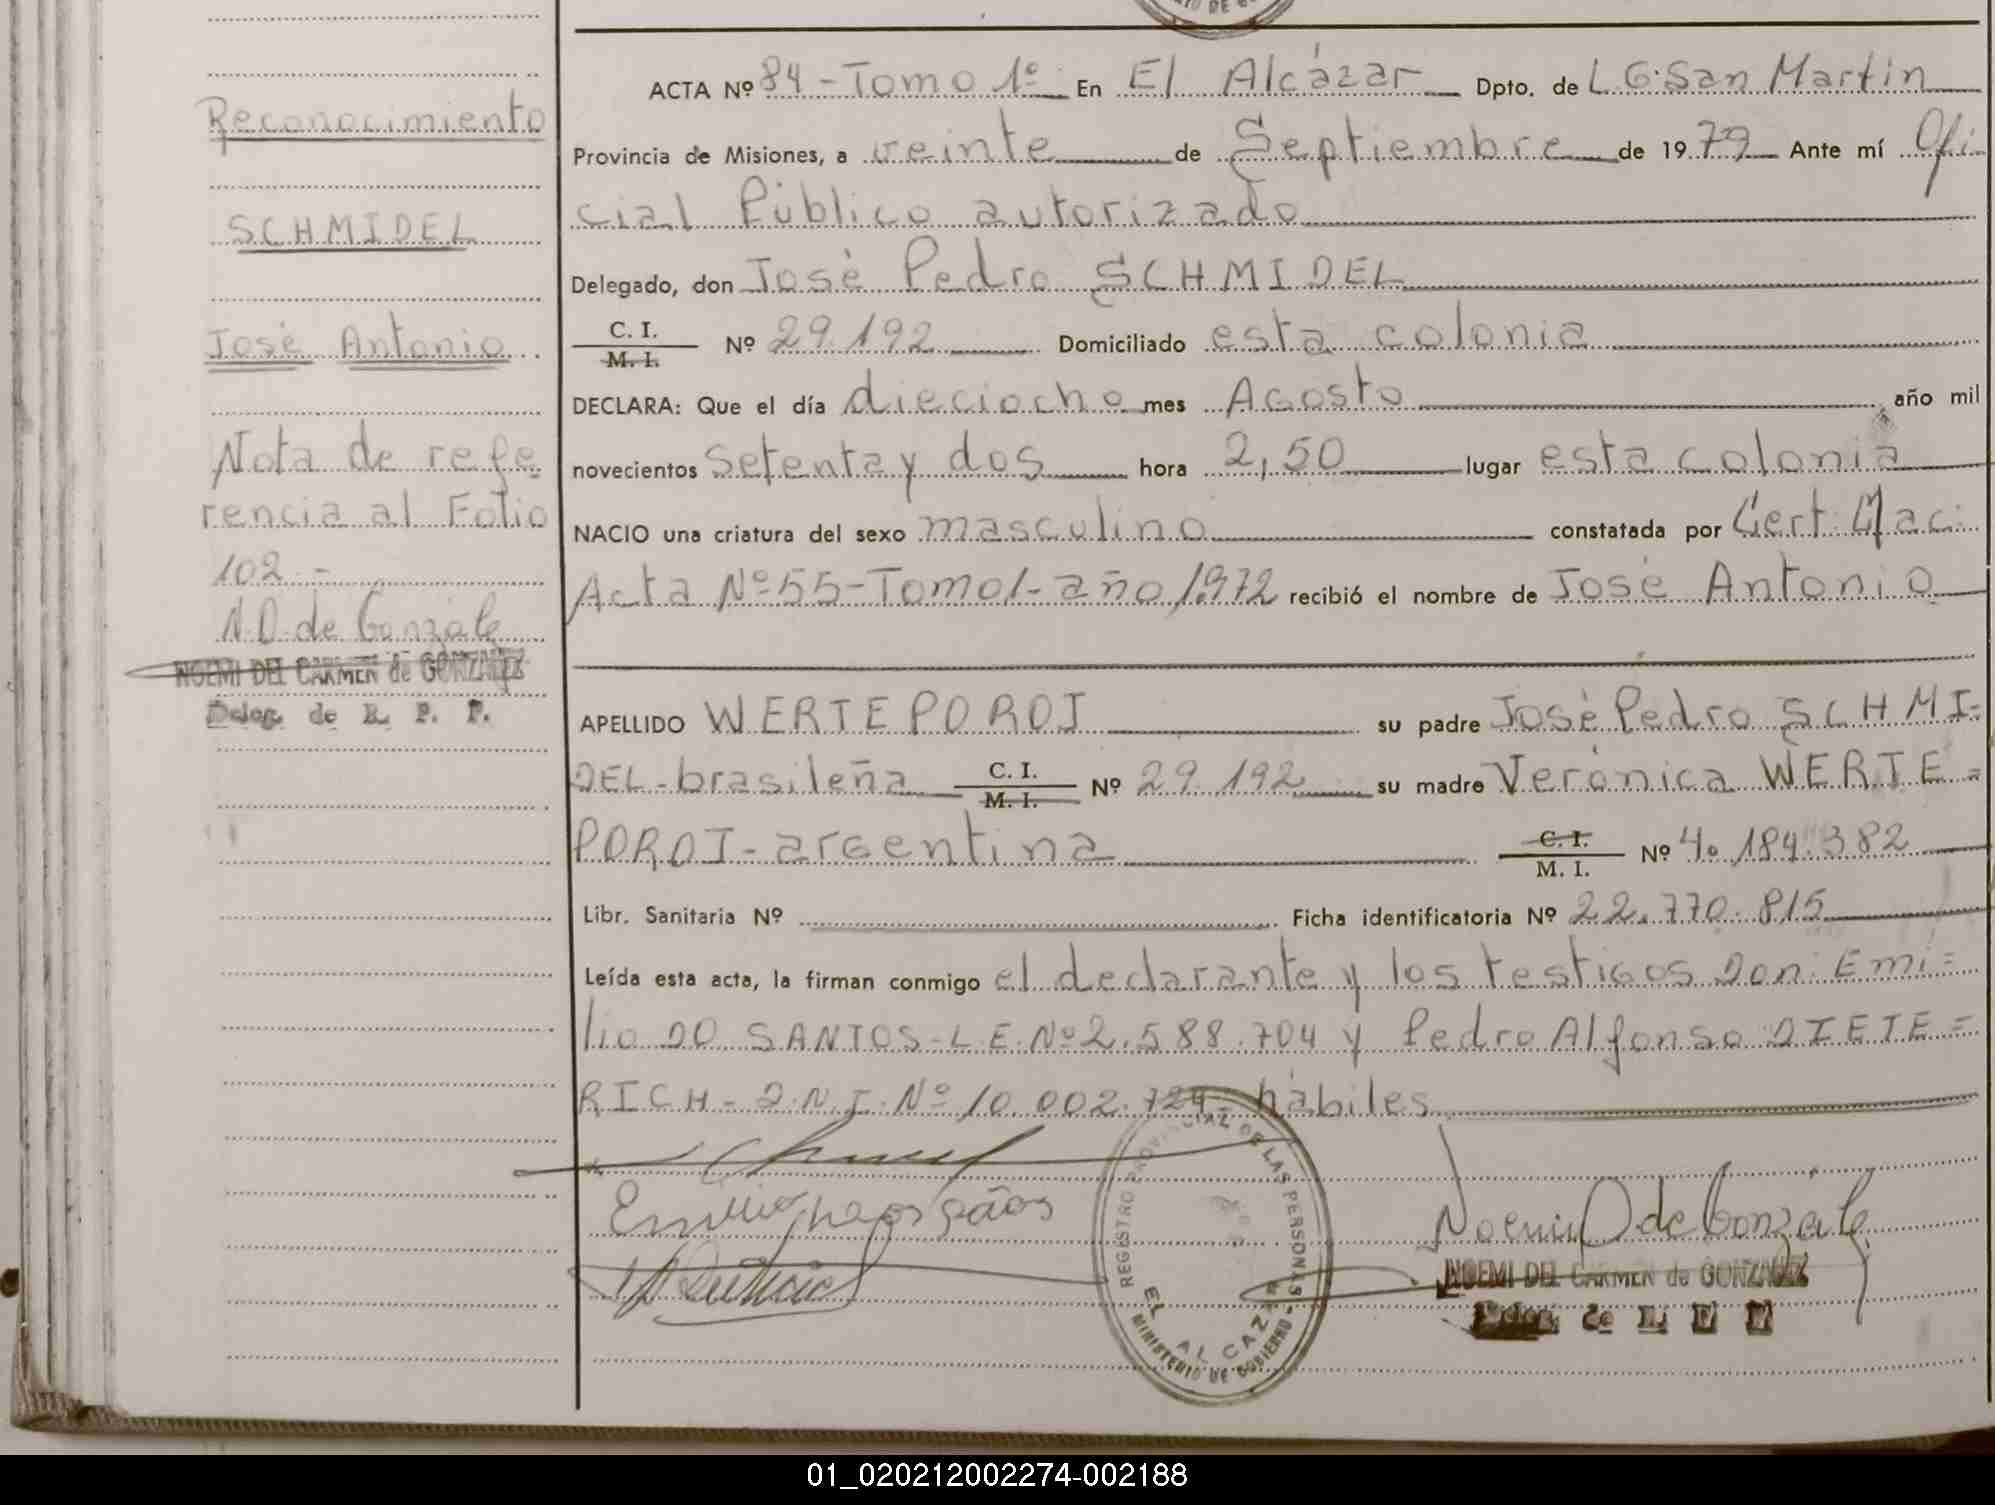 DE
ACTA Nº 84 - Tomo 1º En El Alcázar Dpto. de L.G. San Martín
Provincia de Misiones, a veinte de Septiembre de 1979 Ante mí Ofi-
cial Público autorizado
Delegado, don José Pedro SCHMIDEL
C. I.
M. I.
Nº 29.192 Domiciliado esta colonia
DECLARA: Que el día dieciocho mes Agosto año mil
novecientos Setenta y dos hora 2,50 lugar esta colonia
NACIO una criatura del sexo masculino constatada por Cert. Naci.
Acta Nº 55 - Tomo 1 - año 1972 recibió el nombre de José Antonio
APELLIDO WERTEPOROJ su padre José Pedro SCHMI-
DEL - brasileña C. I.
M. I.
Nº 29.192 su madre Verónica WERTE=
POROJ - argentina C. I.
M. I.
Nº 4.184.382
Libr. Sanitaria Nº Ficha identificatoria Nº 22.770.815
Leída esta acta, la firman conmigo el declarante y los testigos Don Emi=
lio DO SANTOS - L.E. Nº 2.588.704 y Pedro Alfonso DIETE=
RICH - D.N.I. Nº 10.002.724 - hábiles
Reconocimiento
SCHMIDEL
José Antonio
Nota de refe
rencia al Folio
102 -
N.D. de Gonzalez
NOEMI DEL CARMEN de GONZALEZ
Deleg. de R. P. P.
Noemi D de Gonzalez
NOEMI DEL CARMEN de GONZALEZ
Deleg. de R P P
REGISTRO PROVINCIAL DE LAS PERSONAS
EL ALCAZAR
MINISTERIO DE GOBIERNO
01_020212002274-002188